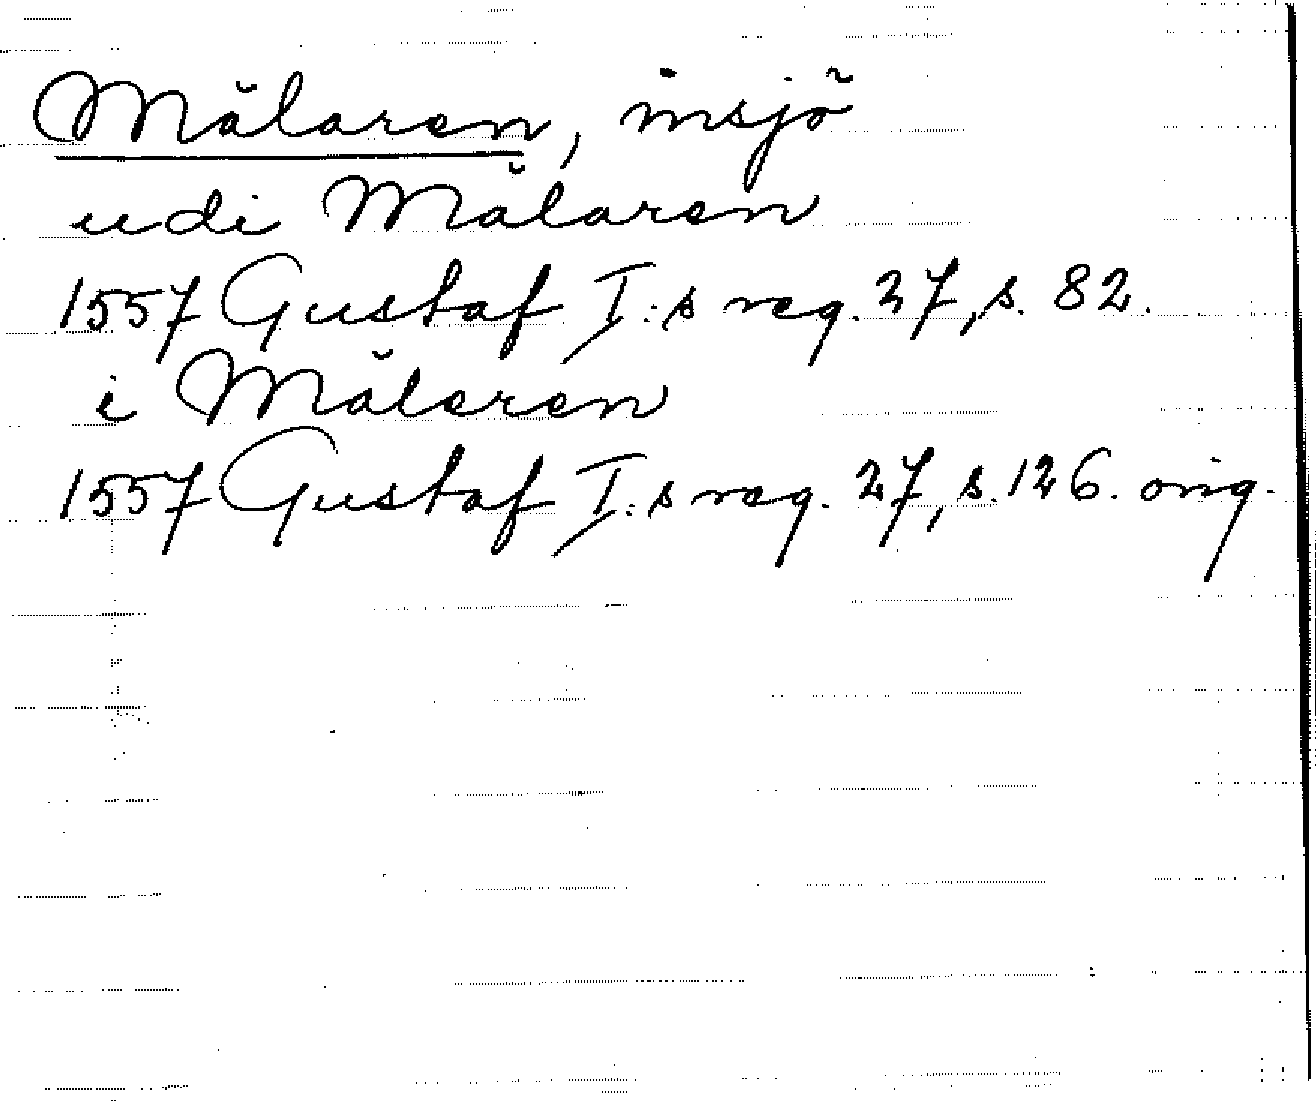 Mälaren, insjö
udi Mälaren
1557 Gustaf I:s reg. 27, s. 82.
i Mälaren
1557 Gustaf I:s reg. 27, s. 126. orig.